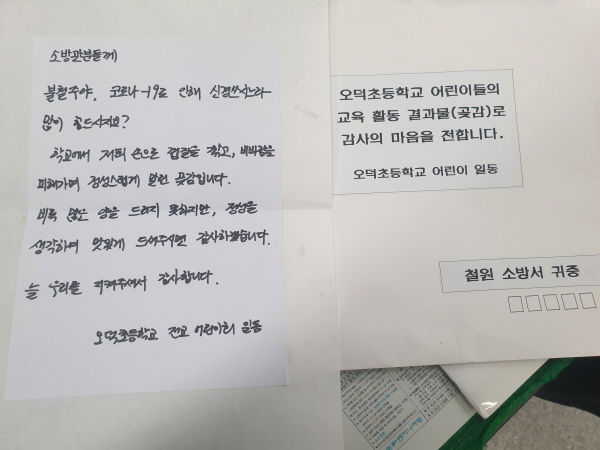 소방관분들께
불철주야, 코로나-19로 인해 신경쓰시느라
많이 힘드시지요?
학교에서 저희 손으로 껍질을 깎고, 비바람을
피해가며 정성스럽게 말린 곶감입니다.
비록 많은 양을 드리지 못하지만, 정성을
생각하며 맛있게 드셔주시면 감사하겠습니다.
늘 우리를 지켜주셔서 감사합니다.
오덕초등학교 전교 어린이회 일동
오덕초등학교 어린이들의
교육 활동 결과물(곶감)로
감사의 마음을 전합니다.
오덕초등학교 어린이 일동
철원 소방서 귀중